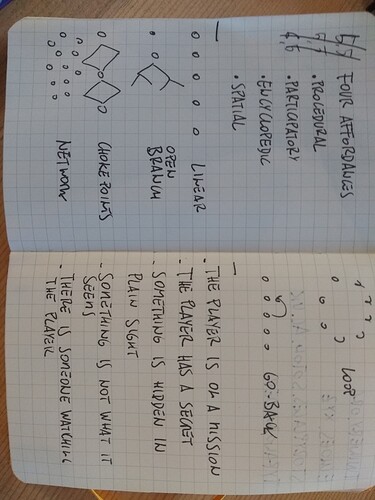 FOUR AFFORDANCES
• PROCEDURAL
• PARTICIPATORY
• ENCYCLOPEDIC
• SPATIAL
LINEAR
OPEN
BRANCH
CHOKE POINTS
NETWORK
LOOP
GO: BACK
• THE PLAYER IS ON A MISSION
• THE PLAYER HAS A SECRET
• SOMETHING IS HIDDEN IN
PLAIN SIGHT
- SOMETHING IS NOT WHAT IT
SEEMS
- THERE IS SOMEONE WATCHING
THE PLAYER